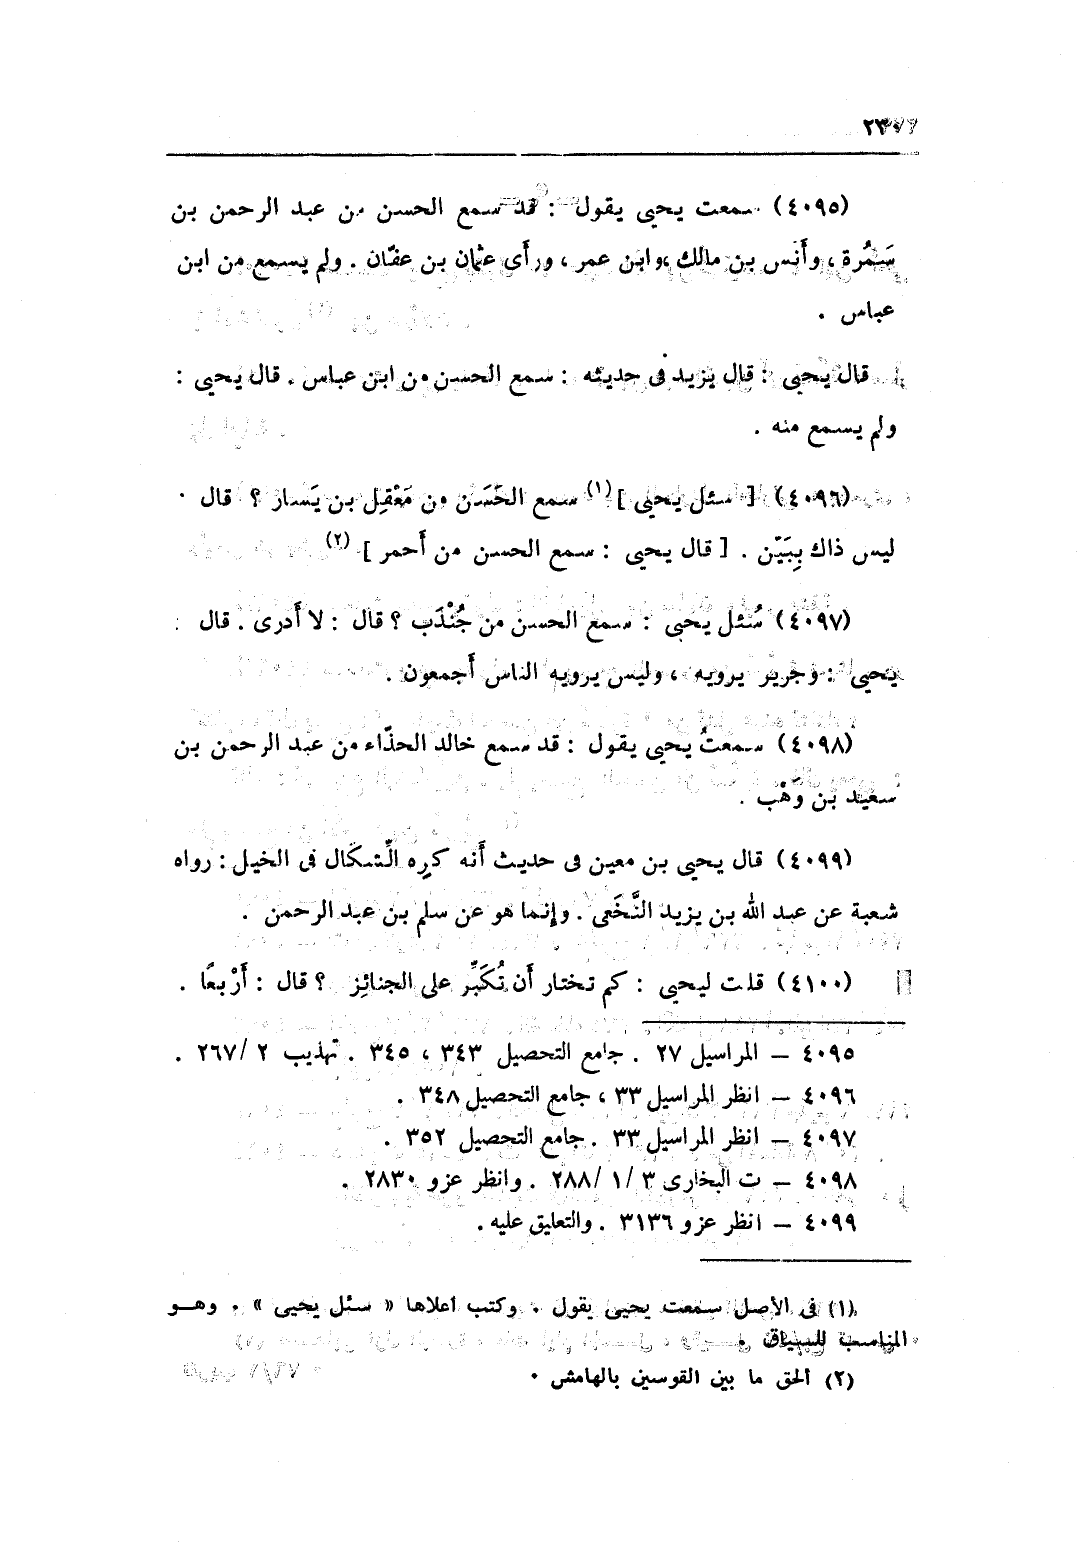 (٤٠٩٥) سمعت يحيى يقول : قد سمع الحسن من عبد الرحمن بن
سَمُرة ، وأَنس بن مالك ، وابن عمر ، ورأى عثمان بن عفّان . ولم يسمع من ابن
عباس .
قال يحيى : قال يزيد فى حديثه : سمع الحسن من ابن عباس . قال يحيى :
ولم يسمع منه .
(٤٠٩٦) [ سئل يحيى ] (١) سمع الحَسَن من مَعْقِل بن يَسار ؟ قال .
ليس ذاك بِبَيّن . [ قال يحيى : سمع الحسن من أَحمر ] (٢)
(٤٠٩٧) سُئل يحيى : سمع الحسن من جُنْدَب ؟ قال : لا أَدرى . قال :
يحيى : وجرير يرويه ، وليس يرويه الناس أَجمعون .
(٤٠٩٨) سمعتُ يحيى يقول : قد سمع خالد الحذّاء من عبد الرحمن بن
سعيد بن وَهْب .
(٤٠٩٩) قال يحيى بن معين فى حديث أَنه كرِه الِّشكَال فى الخيل : رواه
شعبة عن عبد الله بن يزيد النَّخَعى . وإنما هو عن سلم بن عبد الرحمن .
(٤١٠٠) قلت ليحيى : كم تختار أَن تُكَبِّر على الجنائِز ؟ قال : أَرْبعًا .
٤٠٩٥ – المراسيل ٢٧ . جامع التحصيل ٣٤٣ ، ٣٤٥ . تهذيب ٢ /٢٦٧ .
٤٠٩٦ – انظر المراسيل ٣٣ ، جامع التحصيل ٣٤٨ .
٤٠٩٧ – انظر المراسيل ٣٣ . جامع التحصيل ٣٥٢ .
٤٠٩٨ – ت البخارى ٣ /١ /٢٨٨ . وانظر عزو ٢٨٣٠ .
٤٠٩٩ – انظر عزو ٣١٣٦ . والتعليق عليه .
(١) فى الأصل سمعت يحيى يقول . وكتب أعلاها « سئل يحيى » . وهــو
المناسب للسياق .
(٢) الحق ما بين القوسين بالهامش .